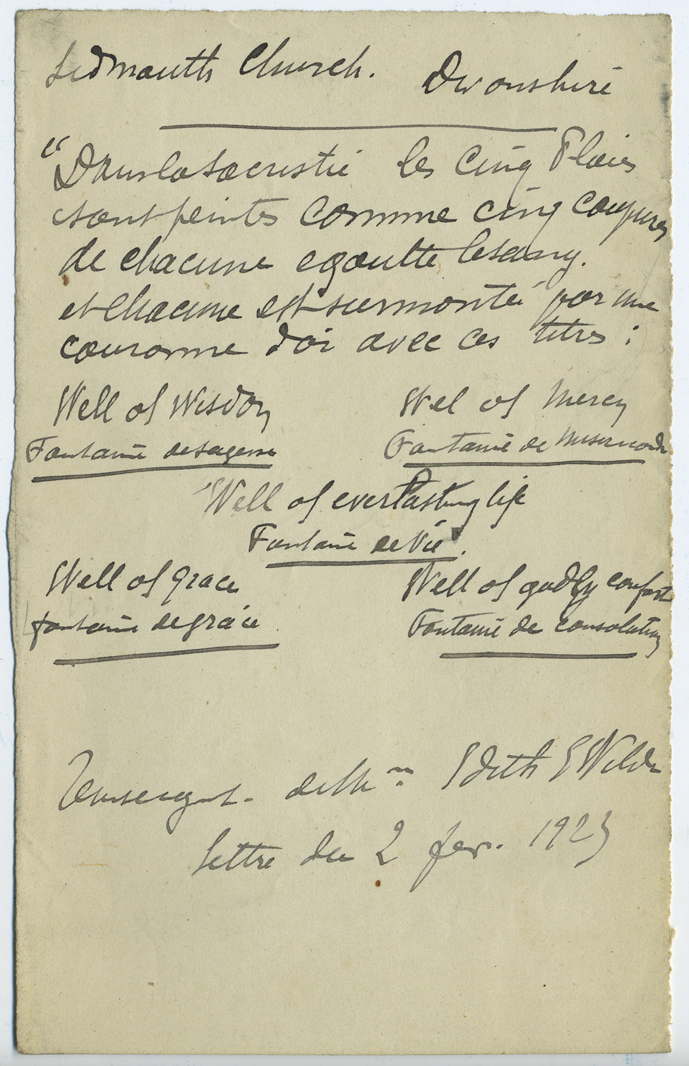 Sidmouth Church. Devonshire
"Dans la Sacristie les Cinq Plaies
sont peintes comme cinq coupures
de chacune egoutte le sang.
et chacune est surmonté par une
couronne d'or avec ces titres :
Well of Wisdom Well of Mercy
Fontaine de sagesse Fontaine de Misericorde
Well of everlasting life
Fontaine de Vie.
Well of Grace Well of godly comfort
fontaine de grâce Fontaine de consolation
Renseignt. de Mrs Edith E Wilde
lettre du 2 fev. 1923